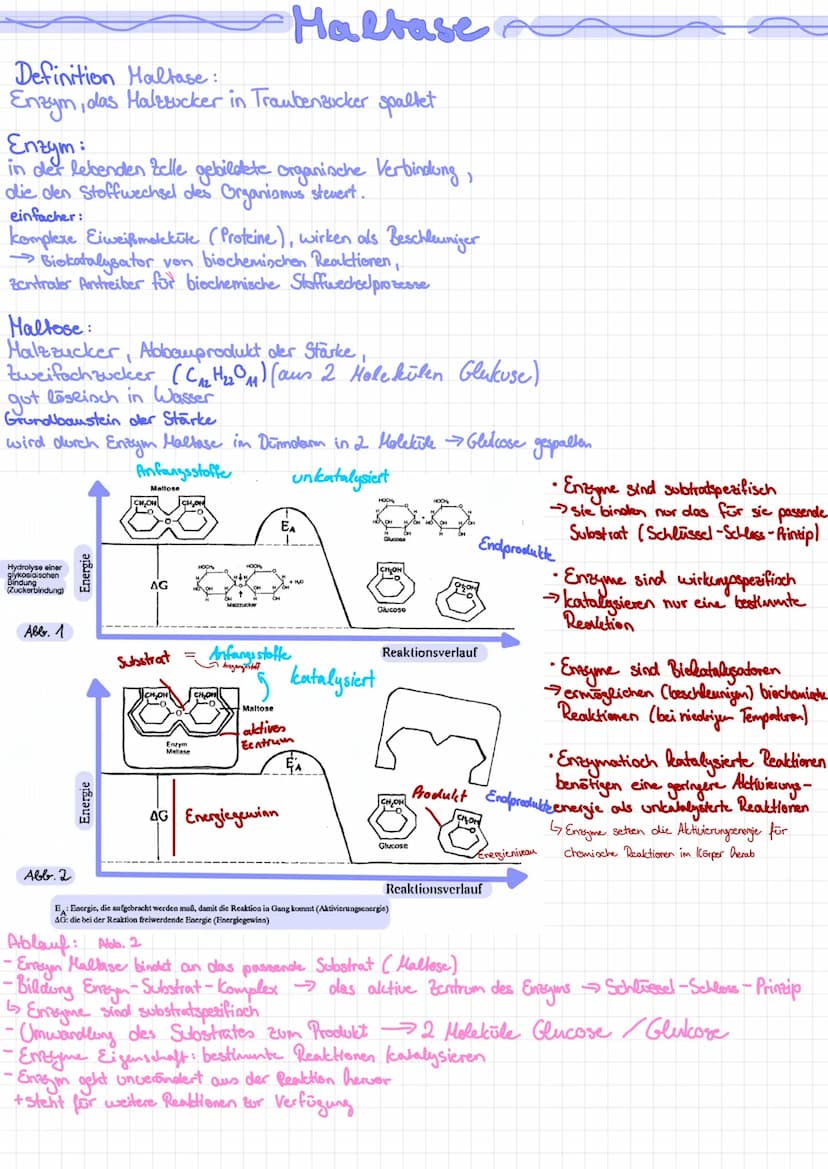 Maltase
Definition Maltase:
Enzym, das Malzzucker in Traubenzucker spaltet
Enzym:
in der lebenden Zelle gebildete organische Verbindung,
die den Stoffwechsel des Organismus steuert.
einfacher:
komplexe Eiweißmoleküle (Proteine), wirken als Beschleuniger
→ Biokatalysator von biochemischen Reaktionen,
zentraler Antreiber für biochemische Stoffwechselprozesse
Maltose:
Malzzucker, Abbauprodukt der Stärke,
Zweifachzucker (C₁₂H₂₂O₁₁) (aus 2 Molekülen Glukose)
gut löslich in Wasser
Grundbaustein der Stärke
wird durch Enzym Maltase im Dünndarm in 2 Moleküle → Glukose gespalten
Anfangsstoffe
unkatalysiert
Maltose
CH₂OH CH₂OH
O
Eₐ
HOCH₂ HOCH₂
Glucose
Endprodukte
Hydrolyse einer
glykosidischen
Bindung
(Zuckerbindung)
Energie
ΔG
HOCH₂ HOCH₂
+ H₂O
Malzzucker
CH₂OH
CH₂OH
Glucose
Abb. 1
Reaktionsverlauf
Substrat = Anfangsstoffe
katalysiert
CH₂OH CH₂OH
O
Maltose
aktives
Zentrum
Enzym
Maltase
E'ₐ
Energie
ΔG
Energiegewinn
Produkt
Endprodukte
CH₂OH
CH₂OH
Glucose
Energieniveau
Abb. 2
Reaktionsverlauf
Eₐ: Energie, die aufgebracht werden muß, damit die Reaktion in Gang kommt (Aktivierungsenergie)
ΔG: die bei der Reaktion freiwerdende Energie (Energiegewinn)
• Enzyme sind substratspezifisch
→ sie binden nur das für sie passende
Substrat (Schlüssel-Schloss-Prinzip)
• Enzyme sind wirkungsspezifisch
→ katalysieren nur eine bestimmte
Reaktion
• Enzyme sind Biokatalysatoren
→ ermöglichen (beschleunigen) biochemische
Reaktionen (bei niedrigen Tempaturen)
• Enzymatisch katalysierte Reaktionen
benötigen eine geringere Aktivierungs-
energie als unkatalysierte Reaktionen
↳ Enzyme setzen die Aktivierungsenergie für
chemische Reaktionen im Körper herab
Ablauf: Abb. 2
- Enzym Maltase bindet an das passende Substrat (Maltose)
- Bildung Enzym-Substrat-Komplex → das aktive Zentrum des Enzyms → Schlüssel-Schloss-Prinzip
↳ Enzyme sind substratspezifisch
- Umwandlung des Substrates zum Produkt → 2 Moleküle Glucose / Glukose
- Enzyme Eigenschaft: bestimmte Reaktionen katalysieren
- Enzym geht unverändert aus der Reaktion hervor
+ steht für weitere Reaktionen zur Verfügung